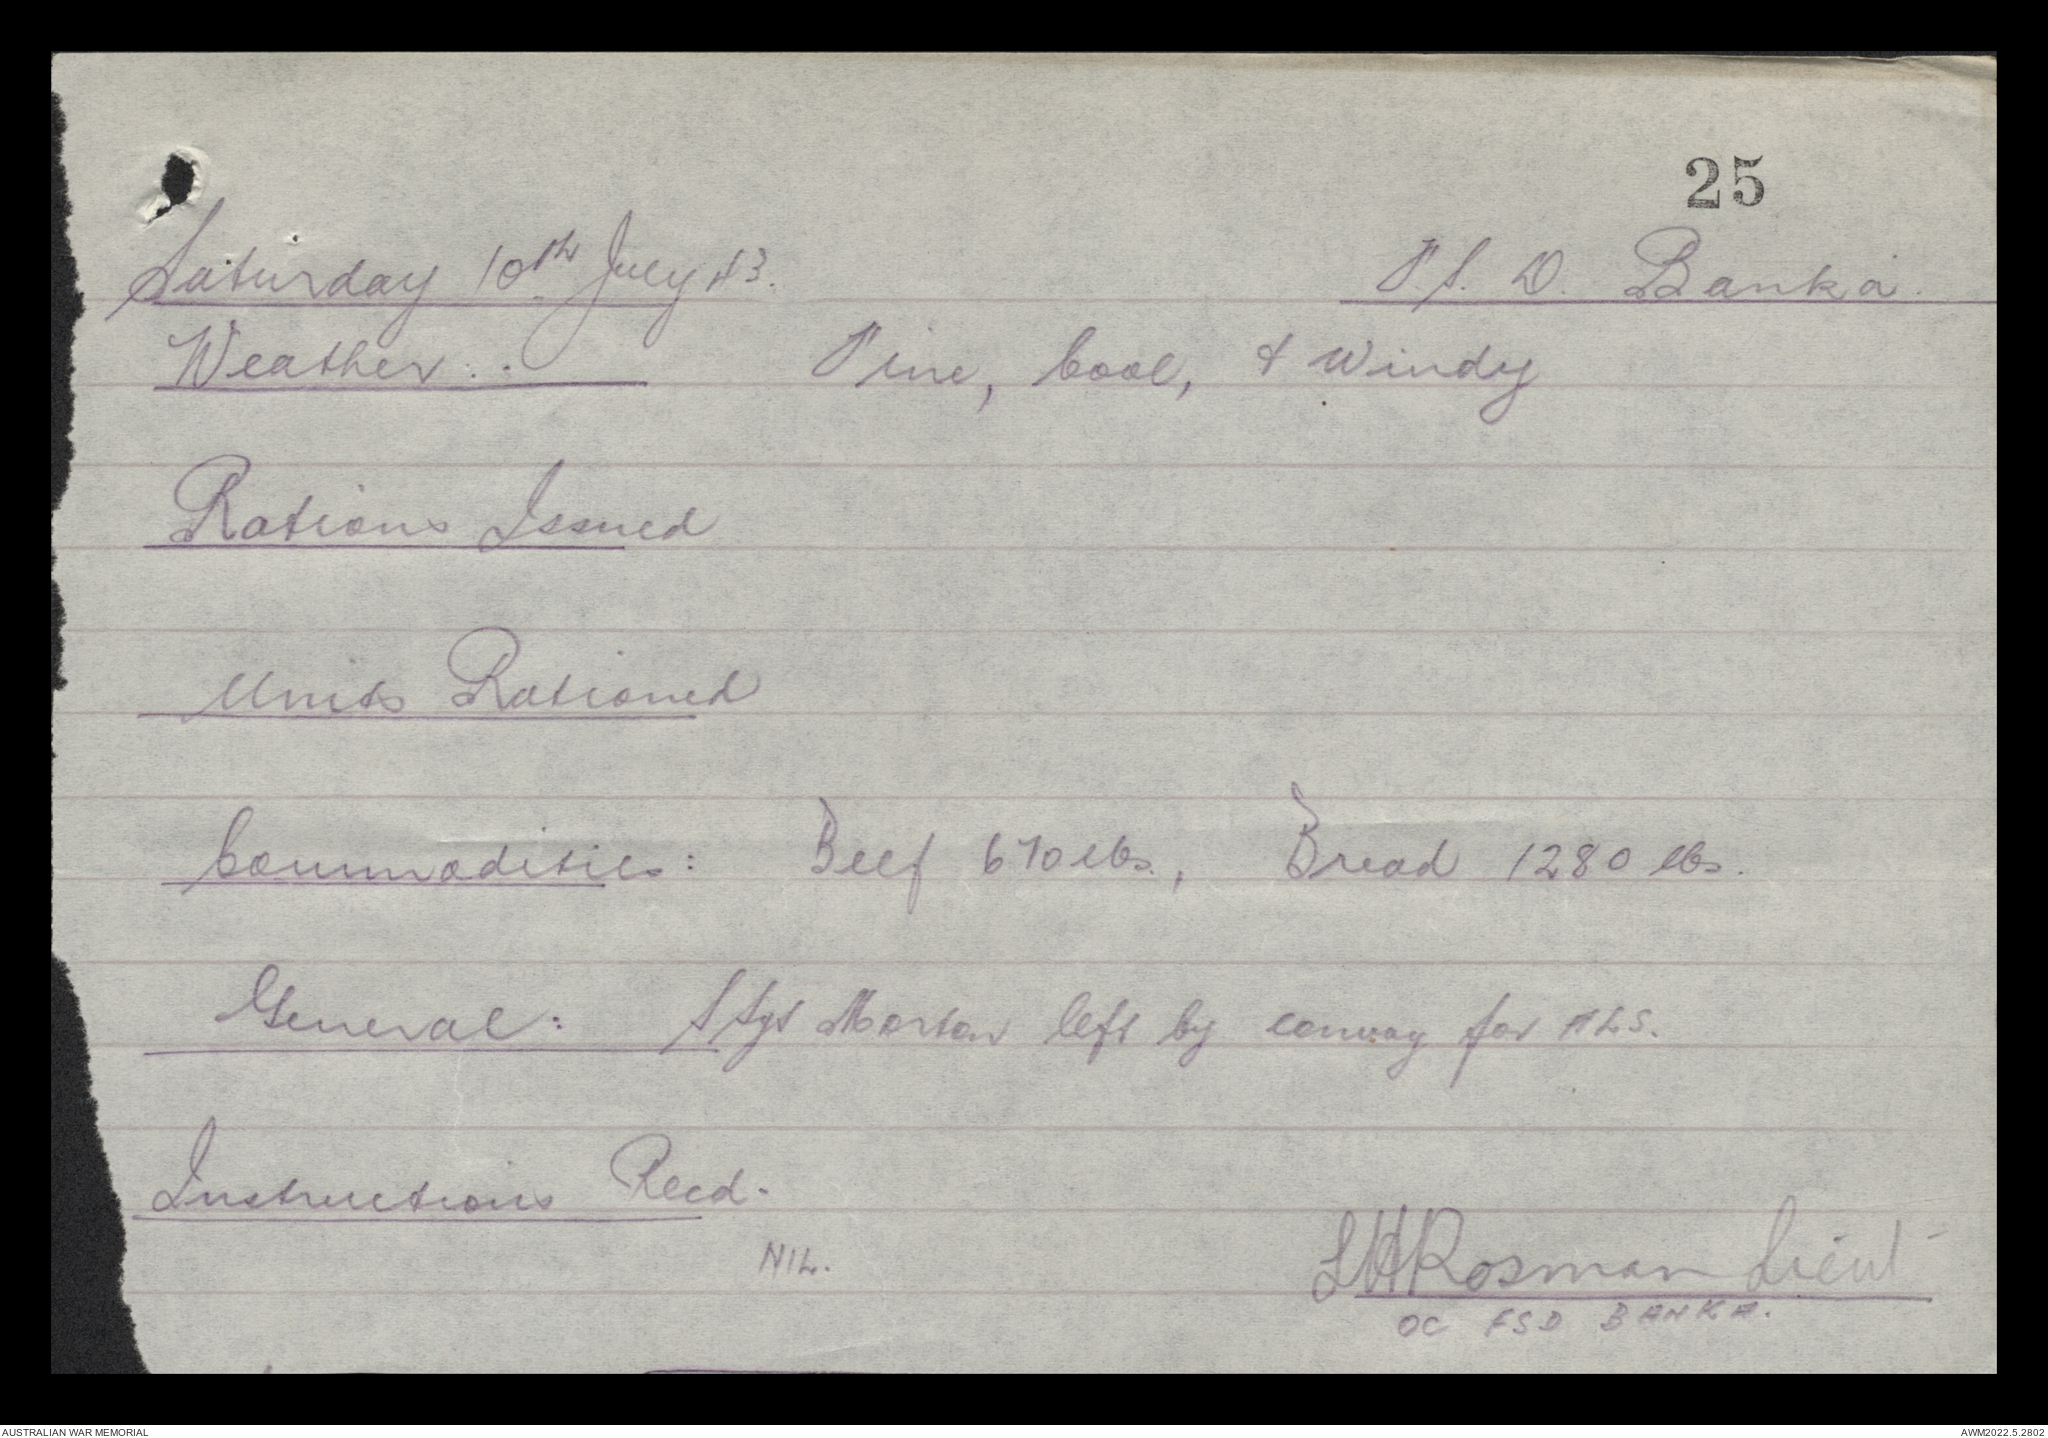 25
Saturday 10th July 43. F.S.D. Banka.
Weather:. Fine, Cool, & Windy
Rations Issued
Units Rationed
Commodities: Beef 670 lbs., Bread 1280 lbs.
General: S Sgt Morton left by convoy for ALS.
Instructions Recd.
NIL.
LHRosman Lieut
OC FSD BANKA.
AUSTRALIAN WAR MEMORIAL AWM2022.5.2802